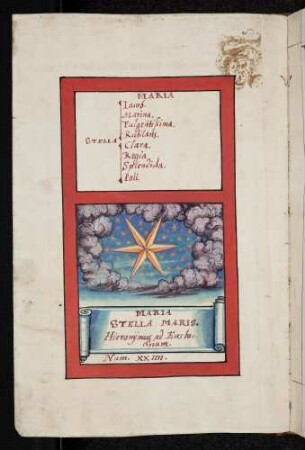 MARIA
Iacob.
Marina.
Fulgentissima.
Rutilans.
STELLA Clara.
Regia.
Splendida.
Poli.
MARIA
STELLA MARIS.
Hieronymus ad Eustho-
chium.
Num. XXIIII.